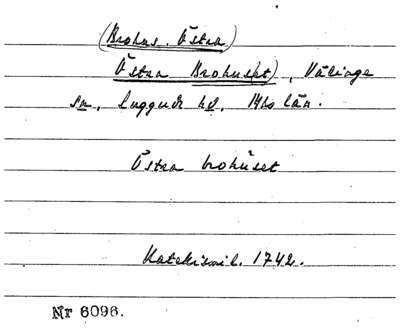 (Brohus. Östra)
Östra Brohus(et), Välinge
sn, Luggude hd, Mhs län.
Östra brohuset
Katekismil. 1742.
Nr 6096.